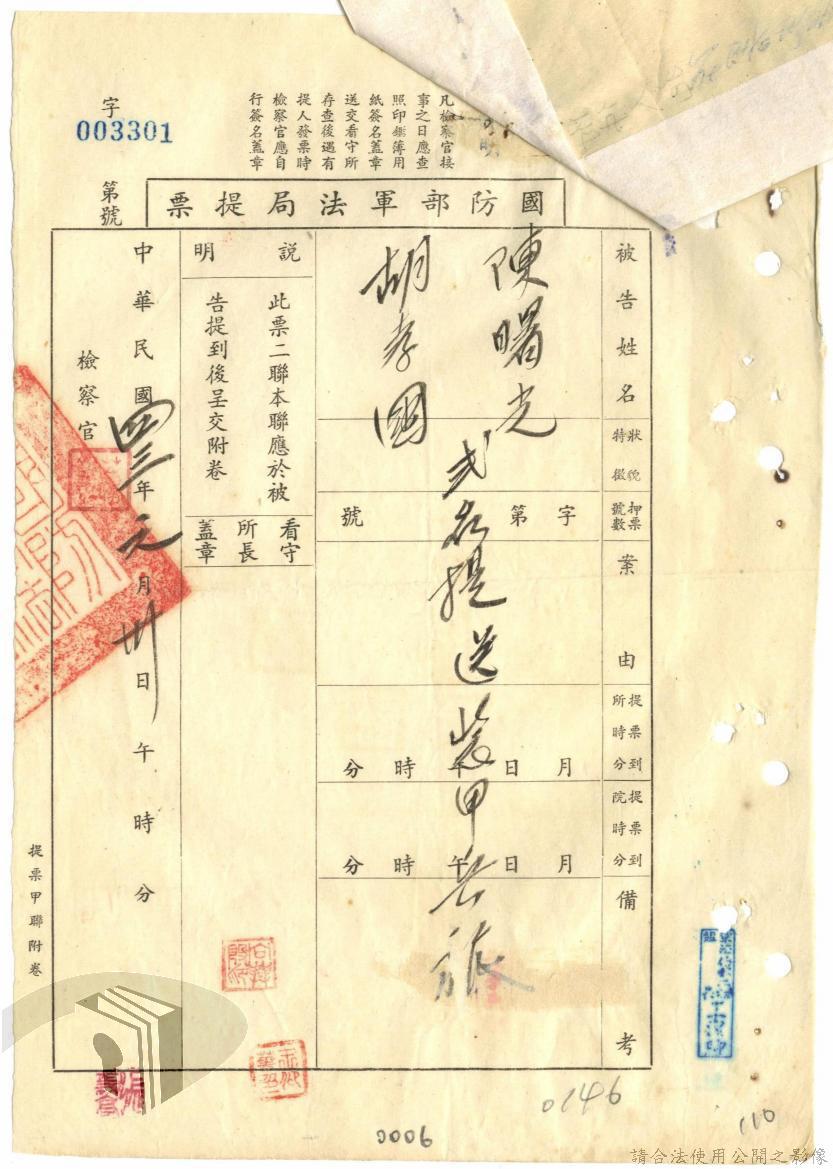 凡檢察官接
事之日應查
照印鑑簿用
紙簽名蓋章
送交看守所
存查後遇有
提人發票時
檢察官應自
行簽名蓋章
字
003301
第號
國防部軍法局提票
被告姓名
狀貌
特徵
押票
號數
案由
提票到
所時分
提票到
院時分
備考
陳曙光
胡孝國
貳名提送裝甲兵旅
字第號
月日午時分
月日午時分
說明
此票二聯本聯應於被
告提到後呈交附卷
看守
所長
蓋章
中華民國四三年元月卅日午時分
檢察官
提票甲聯附卷
0146
110
9000
請合法使用公開之影像